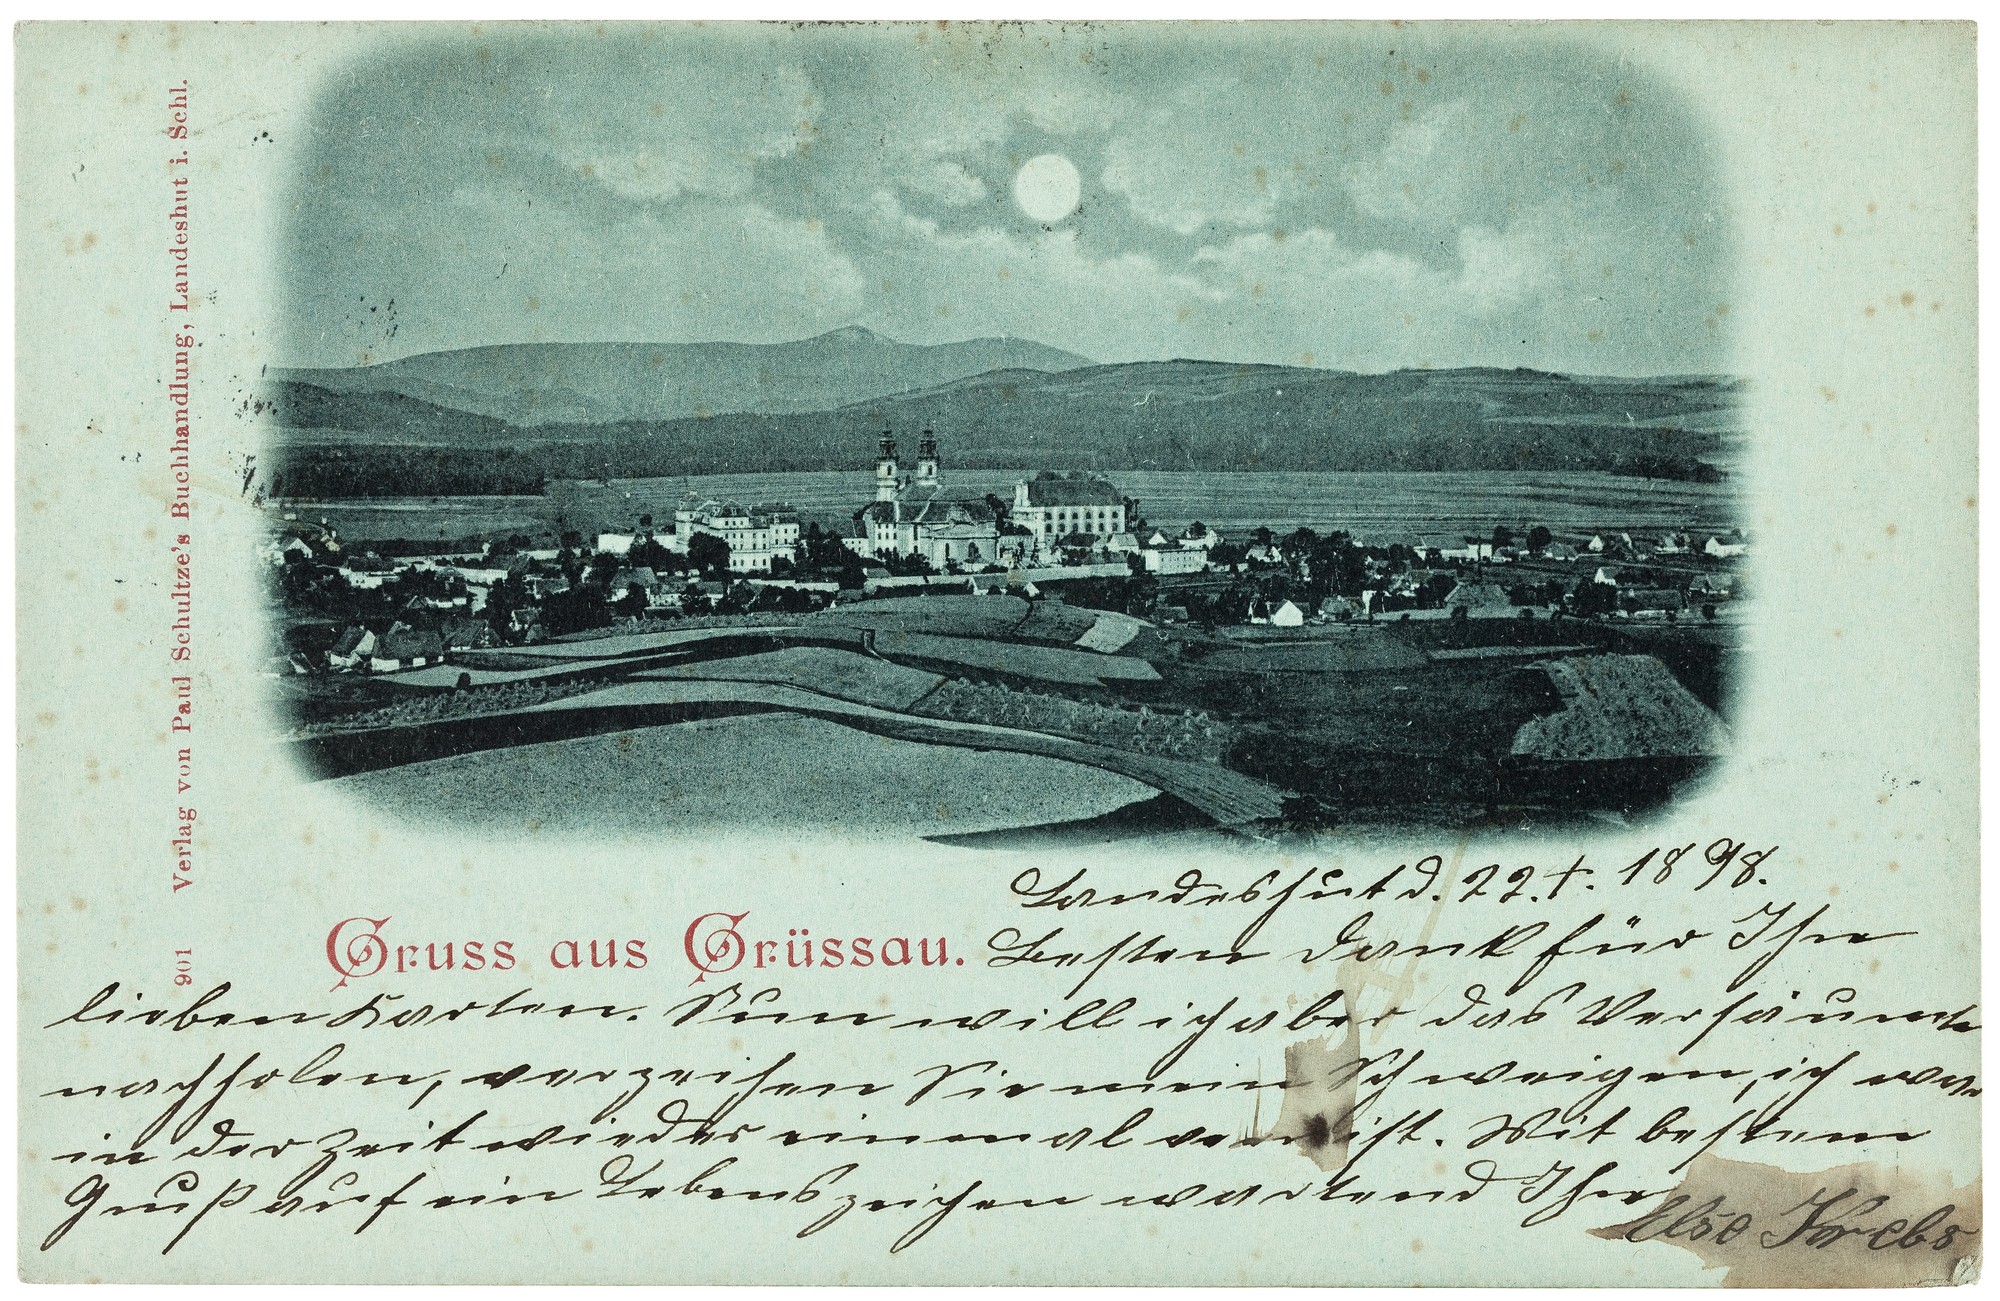 901 Verlag von Paul Schultze's Buchhandlung, Landeshut i. Schl.
Gruss aus Grüssau.
Landeshut d. 22.X. 1898.
Besten Dank für Ihre
lieben Karten. Nun will ich aber das Versäumte
nachholen, verzeihen Sie mein Schweigen, ich war
in der Zeit wieder einmal verreist. Mit bestem
Gruß auf ein Lebenszeichen wartend Ihre
Else Krebs